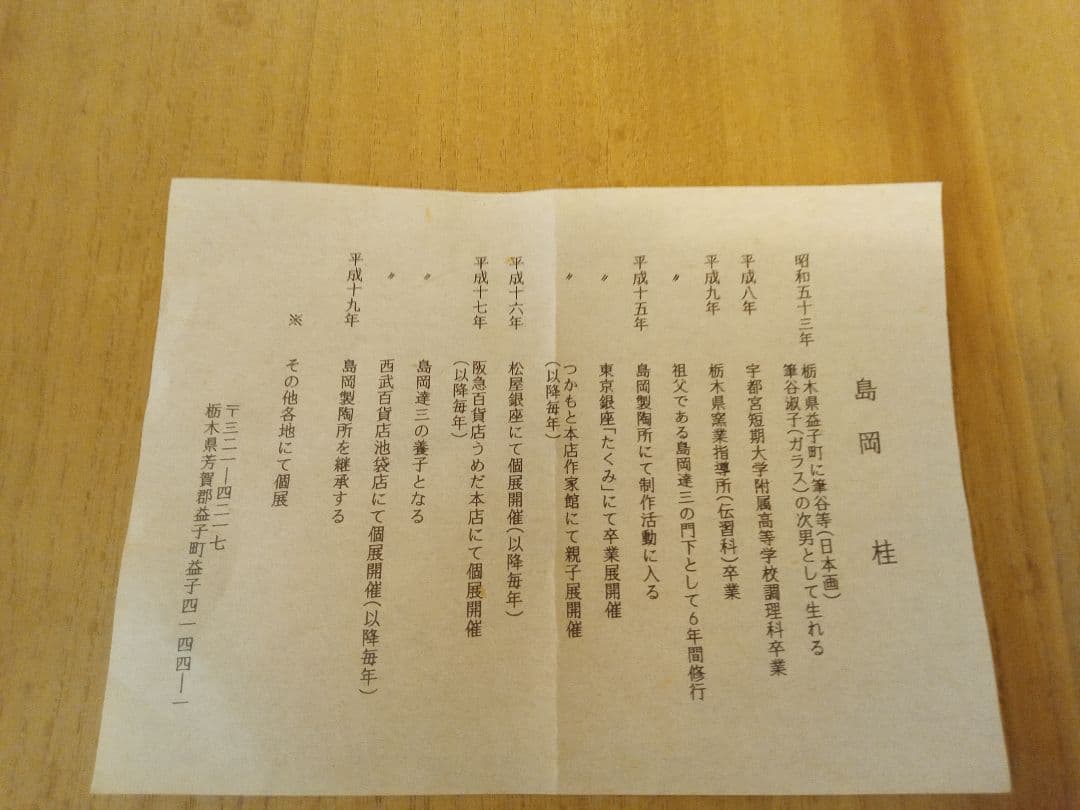 島岡 桂
昭和五十三年 栃木県益子町に筆谷等(日本画)
筆谷淑子(ガラス)の次男として生れる
平成八年 宇都宮短期大学附属高等学校調理科卒業
平成九年 栃木県窯業指導所(伝習科)卒業
〃 祖父である島岡達三の門下として6年間修行
平成十五年 島岡製陶所にて制作活動に入る
〃 東京銀座「たくみ」にて卒業展開催
〃 つかもと本店作家館にて親子展開催
(以降毎年)
平成十六年 松屋銀座にて個展開催(以降毎年)
平成十七年 阪急百貨店うめだ本店にて個展開催
(以降毎年)
〃 島岡達三の養子となる
〃 西武百貨店池袋店にて個展開催(以降毎年)
平成十九年 島岡製陶所を継承する
※ その他各地にて個展
〒三二一―四二一七
栃木県芳賀郡益子町益子四一四四―一